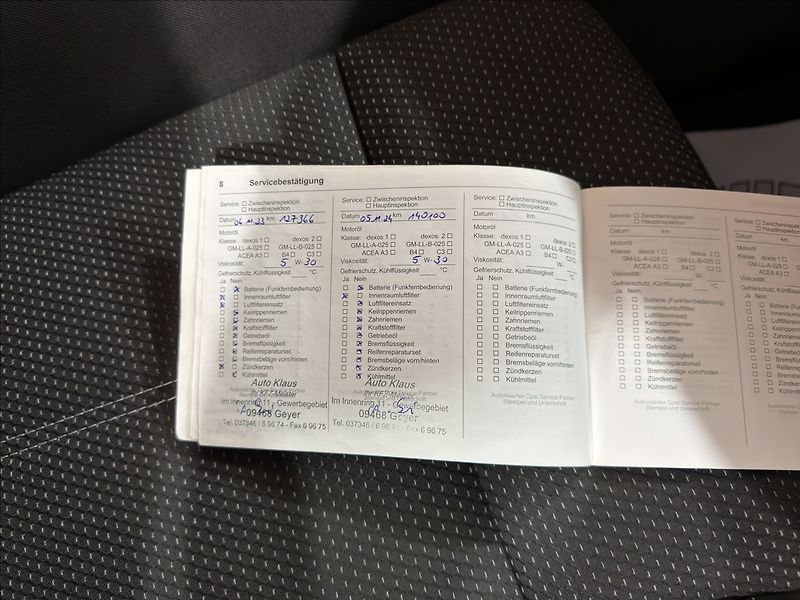 8 Servicebestätigung
Service: ☐ Zwischeninspektion
☐ Hauptinspektion
Datum 06.11.23 km 127366
Motoröl
Klasse: dexos 1 ☐ dexos 2 ☐
GM-LL-A-025 ☐ GM-LL-B-025 ☐
ACEA A3 ☐ B4 ☐ C3 ☐
Viskosität: 5 W-30
Gefrierschutz, Kühlflüssigkeit °C
Ja Nein
Batterie (Funkfernbedienung)
Innenraumluftfilter
Luftfiltereinsatz
Keilrippenriemen
Zahnriemen
Kraftstofffilter
Getriebeöl
Bremsflüssigkeit
Reifenreparaturset
Bremsbeläge vorn/hinten
Zündkerzen
Kühlmittel
Auto Klaus
Ihr KFZ-Meister
Im Innenring 11 - Gewerbegebiet
09468 Geyer
Tel. 037346 / 6 96 74 - Fax 6 96 75
Service: ☐ Zwischeninspektion
☐ Hauptinspektion
Datum 05.11.24 km 140100
Motoröl
Klasse: dexos 1 ☐ dexos 2 ☐
GM-LL-A-025 ☐ GM-LL-B-025 ☐
ACEA A3 ☐ B4 ☐ C3 ☐
Viskosität: 5 W-30
Gefrierschutz, Kühlflüssigkeit °C
Ja Nein
Batterie (Funkfernbedienung)
Innenraumluftfilter
Luftfiltereinsatz
Keilrippenriemen
Zahnriemen
Kraftstofffilter
Getriebeöl
Bremsflüssigkeit
Reifenreparaturset
Bremsbeläge vorn/hinten
Zündkerzen
Kühlmittel
Auto Klaus
Ihr KFZ-Meister
Im Innenring 11 - Gewerbegebiet
09468 Geyer
Tel. 037346 / 6 96 74 - Fax 6 96 75
Service: ☐ Zwischeninspektion
☐ Hauptinspektion
Datum km
Motoröl
Klasse: dexos 1 ☐ dexos 2 ☐
GM-LL-A-025 ☐ GM-LL-B-025 ☐
ACEA A3 ☐ B4 ☐ C3 ☐
Viskosität: W-
Gefrierschutz, Kühlflüssigkeit °C
Ja Nein
☐ ☐ Batterie (Funkfernbedienung)
☐ ☐ Innenraumluftfilter
☐ ☐ Luftfiltereinsatz
☐ ☐ Keilrippenriemen
☐ ☐ Zahnriemen
☐ ☐ Kraftstofffilter
☐ ☐ Getriebeöl
☐ ☐ Bremsflüssigkeit
☐ ☐ Reifenreparaturset
☐ ☐ Bremsbeläge vorn/hinten
☐ ☐ Zündkerzen
☐ ☐ Kühlmittel
Autorisierter Opel Service Partner
Stempel und Unterschrift
Service: ☐ Zwischeninspektion
☐ Hauptinspektion
Datum km
Motoröl
Klasse: dexos 1 ☐ dexos 2 ☐
GM-LL-A-025 ☐ GM-LL-B-025 ☐
ACEA A3 ☐ B4 ☐ C3 ☐
Viskosität: W-
Gefrierschutz, Kühlflüssigkeit °C
Ja Nein
☐ ☐ Batterie (Funkfernbedienung)
☐ ☐ Innenraumluftfilter
☐ ☐ Luftfiltereinsatz
☐ ☐ Keilrippenriemen
☐ ☐ Zahnriemen
☐ ☐ Kraftstofffilter
☐ ☐ Getriebeöl
☐ ☐ Bremsflüssigkeit
☐ ☐ Reifenreparaturset
☐ ☐ Bremsbeläge vorn/hinten
☐ ☐ Zündkerzen
☐ ☐ Kühlmittel
Autorisierter Opel Service Partner
Stempel und Unterschrift
Service:
Datum km
Motoröl
Klasse: dexos 1 ☐
GM-LL-A-025 ☐
ACEA A3 ☐
Viskosität:
Gefrierschutz, Kühlflüssigkeit
Ja Nein